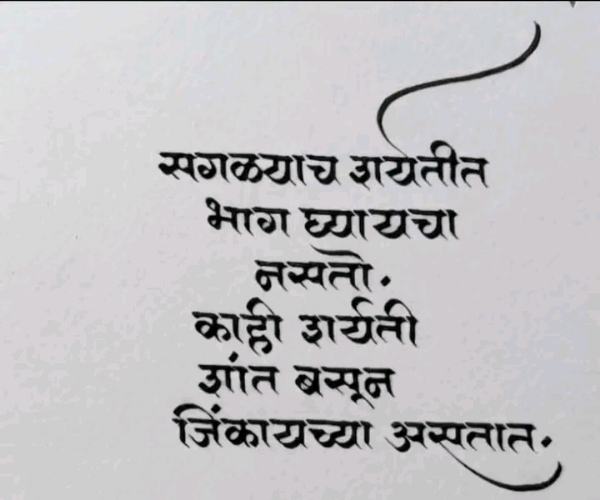 सगळ्याच शर्यतीत
भाग घ्यायचा
नसतो.
काही शर्यती
शांत बसून
जिंकायच्या असतात.